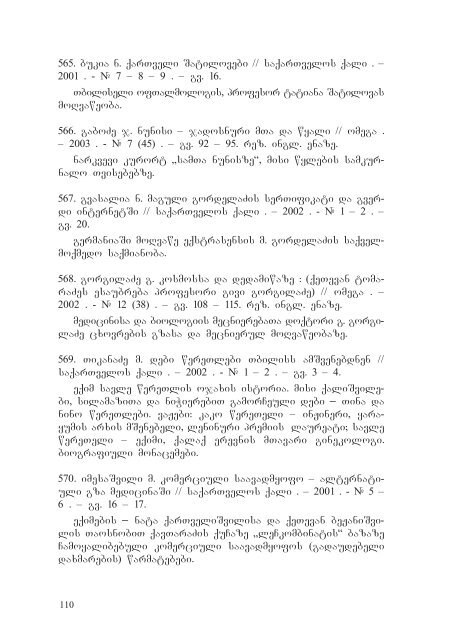 565. ბუკია ნ. ქართველი შატილოვები // საქართველოს ქალი . –
2001 . - № 7 – 8 – 9 . – გვ. 16.
თბილისელი ოფთალმოლოგის, პროფესორ ტატიანა შატილოვას
მოღვაწეობა.
566. გაბოძე ჯ. ნუნისი – ჯადოსნური მთა და წყალი // ომეგა .
– 2003 . - № 7 (45) . – გვ. 92 – 95. რეზ. ინგლ. ენაზე.
ნარკვევი კურორტ „სამთა ნუნისზე“, მისი წყლების სამკურ-
ნალო თვისებებზე.
567. გვასალია ნ. მაგული გორდელაძის სერთიფიკატი და გვერ-
დი ინტერნეტში // საქართველოს ქალი . – 2002 . - № 1 – 2 . –
გვ. 20.
გერმანიაში მოღვაწე ექსტრასენსის მ. გორდელაძის საქველ-
მოქმედო საქმიანობა.
568. გორგილაძე გ. კოსმოსსა და დედამიწაზე : (ქეთევან ტომა-
რაძეს ესაუბრება პროფესორი გივი გორგილაძე) // ომეგა . –
2002 . - № 12 (38) . – გვ. 108 – 115. რეზ. ინგლ. ენაზე.
მედიცინისა და ბიოლოგიის მეცნიერებათა დოქტორი გ. გორგი-
ლაძე ცხოვრების გზასა და მეცნიერულ მოღვაწეობაზე.
569. თიკანაძე მ. დები წერეთლები თბილისს ამშვენებდნენ //
საქართველოს ქალი . – 2002 . - № 1 – 2 . – გვ. 3 – 4.
ექიმ სავლე წერეთლის ოჯახის ისტორია. მისი ქალიშვილე-
ბი, სილამაზითა და ნიჭიერებით გამორჩეული დები – თინა და
ნინო წერეთლები. ვაჟები: კაკო წერეთელი – ინჟინერი, ყარა-
ყუმის არხის მშენებელი, ლენინური პრემიის ლაურეატი; სავლე
წერეთელი – ექიმი, ქალაქ ერევნის მთავარი გინეკოლოგი.
ბიოგრაფიული მონაცემები.
570. იმესაშვილი მ. კომერციული საავადმყოფო – ალტერნატი-
ული გზა მედიცინაში // საქართველოს ქალი . – 2001 . - № 5 –
6 . – გვ. 16 – 17.
ექიმების – ნატა ქართველიშვილისა და ქეთევან ბეჟანიშვი-
ლის თაოსნობით ქავთარაძის ქუჩაზე „ლეჩკომბინატის“ ბაზაზე
ჩამოყალიბებული კომერციული საავადმყოფოს (გადაუდებელი
დახმარების) წარმატებები.
110